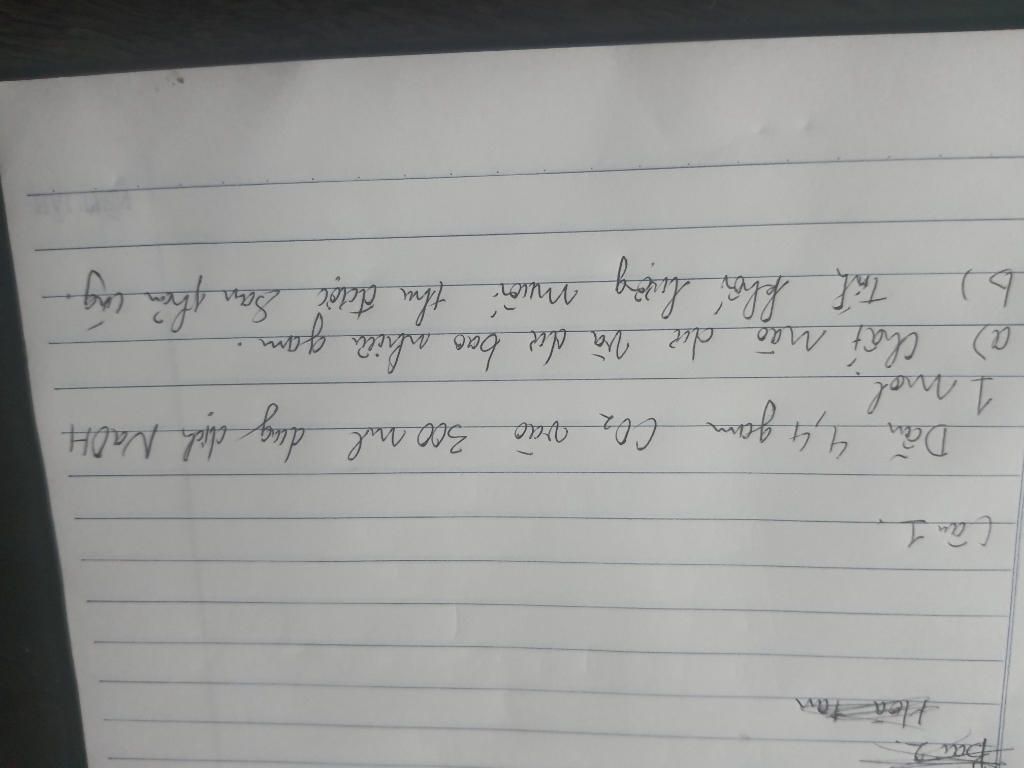 Bài 2
Hoà tan
Câu 1.
Dẫn 4,4 gam CO2 vào 300 ml dug dịch NaOH
1 mol.
a) Chất nào dư và dư bao nhiêu gam.
b) Tính khối lượng muối thu được sau phản ứng.